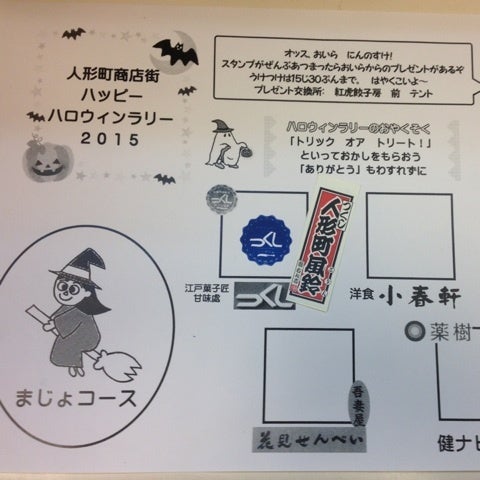 人形町商店街
ハッピー
ハロウィンラリー
２０１５
オッス、おいら にんのすけ!
スタンプがぜんぶあつまったらおいらからのプレゼントがあるぞ
うけつけは15じ30ぷんまで。 はやくこい～
プレゼント交換所: 紅虎餃子房 前 テント
ハロウィンラリーのおやくそく
「トリック オア トリート!」
といっておかしをもらおう
「ありがとう」もわすれずに
つくし
つくし
人形町風鈴
江戸菓子匠
甘味處
つくし
洋食 小春軒
まじょコース
吾妻屋
花見せんべい
薬樹
健ナビ